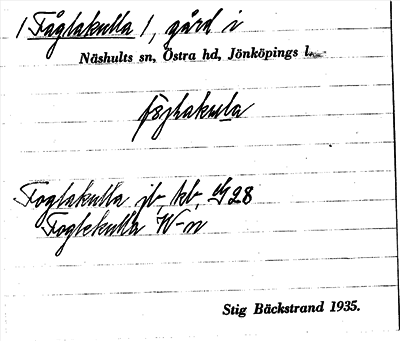 /Fåglakulla/, gård i
Näshults sn, Östra hd, Jönköpings l.
Foglakulla jb, kb, GS 28
Foglekulla W-n
Stig Bäckstrand 1935.